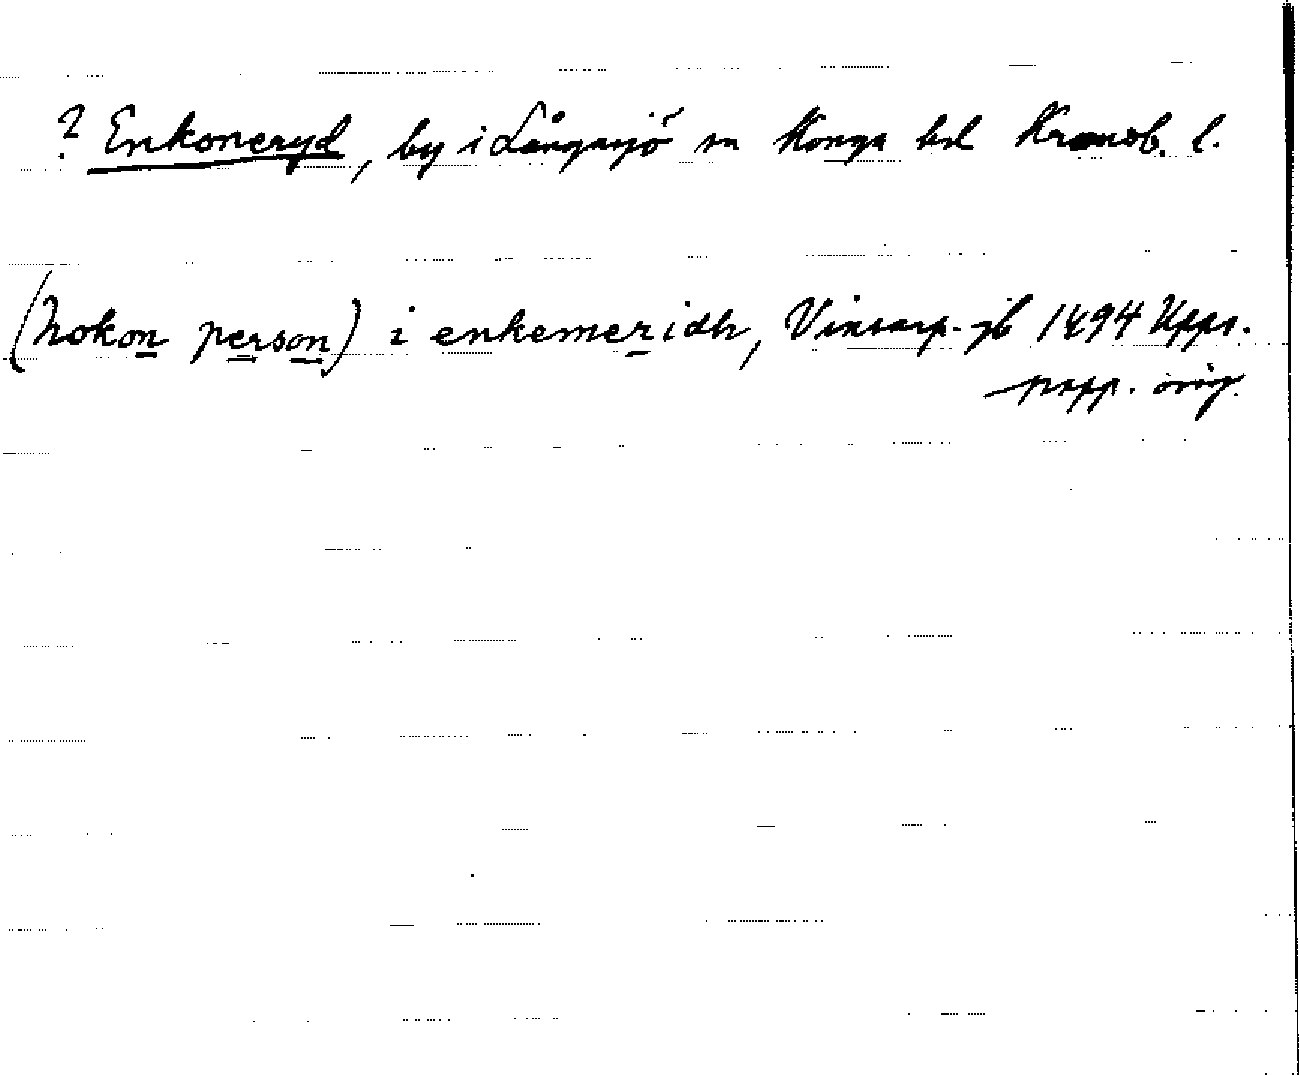 ? Enkoneryd, by i Långasjö sn Konga hd Kronob. l.
(hokon person) i enkemeridh, Vinsarp-jb 1494 Upps.
papp. orig.